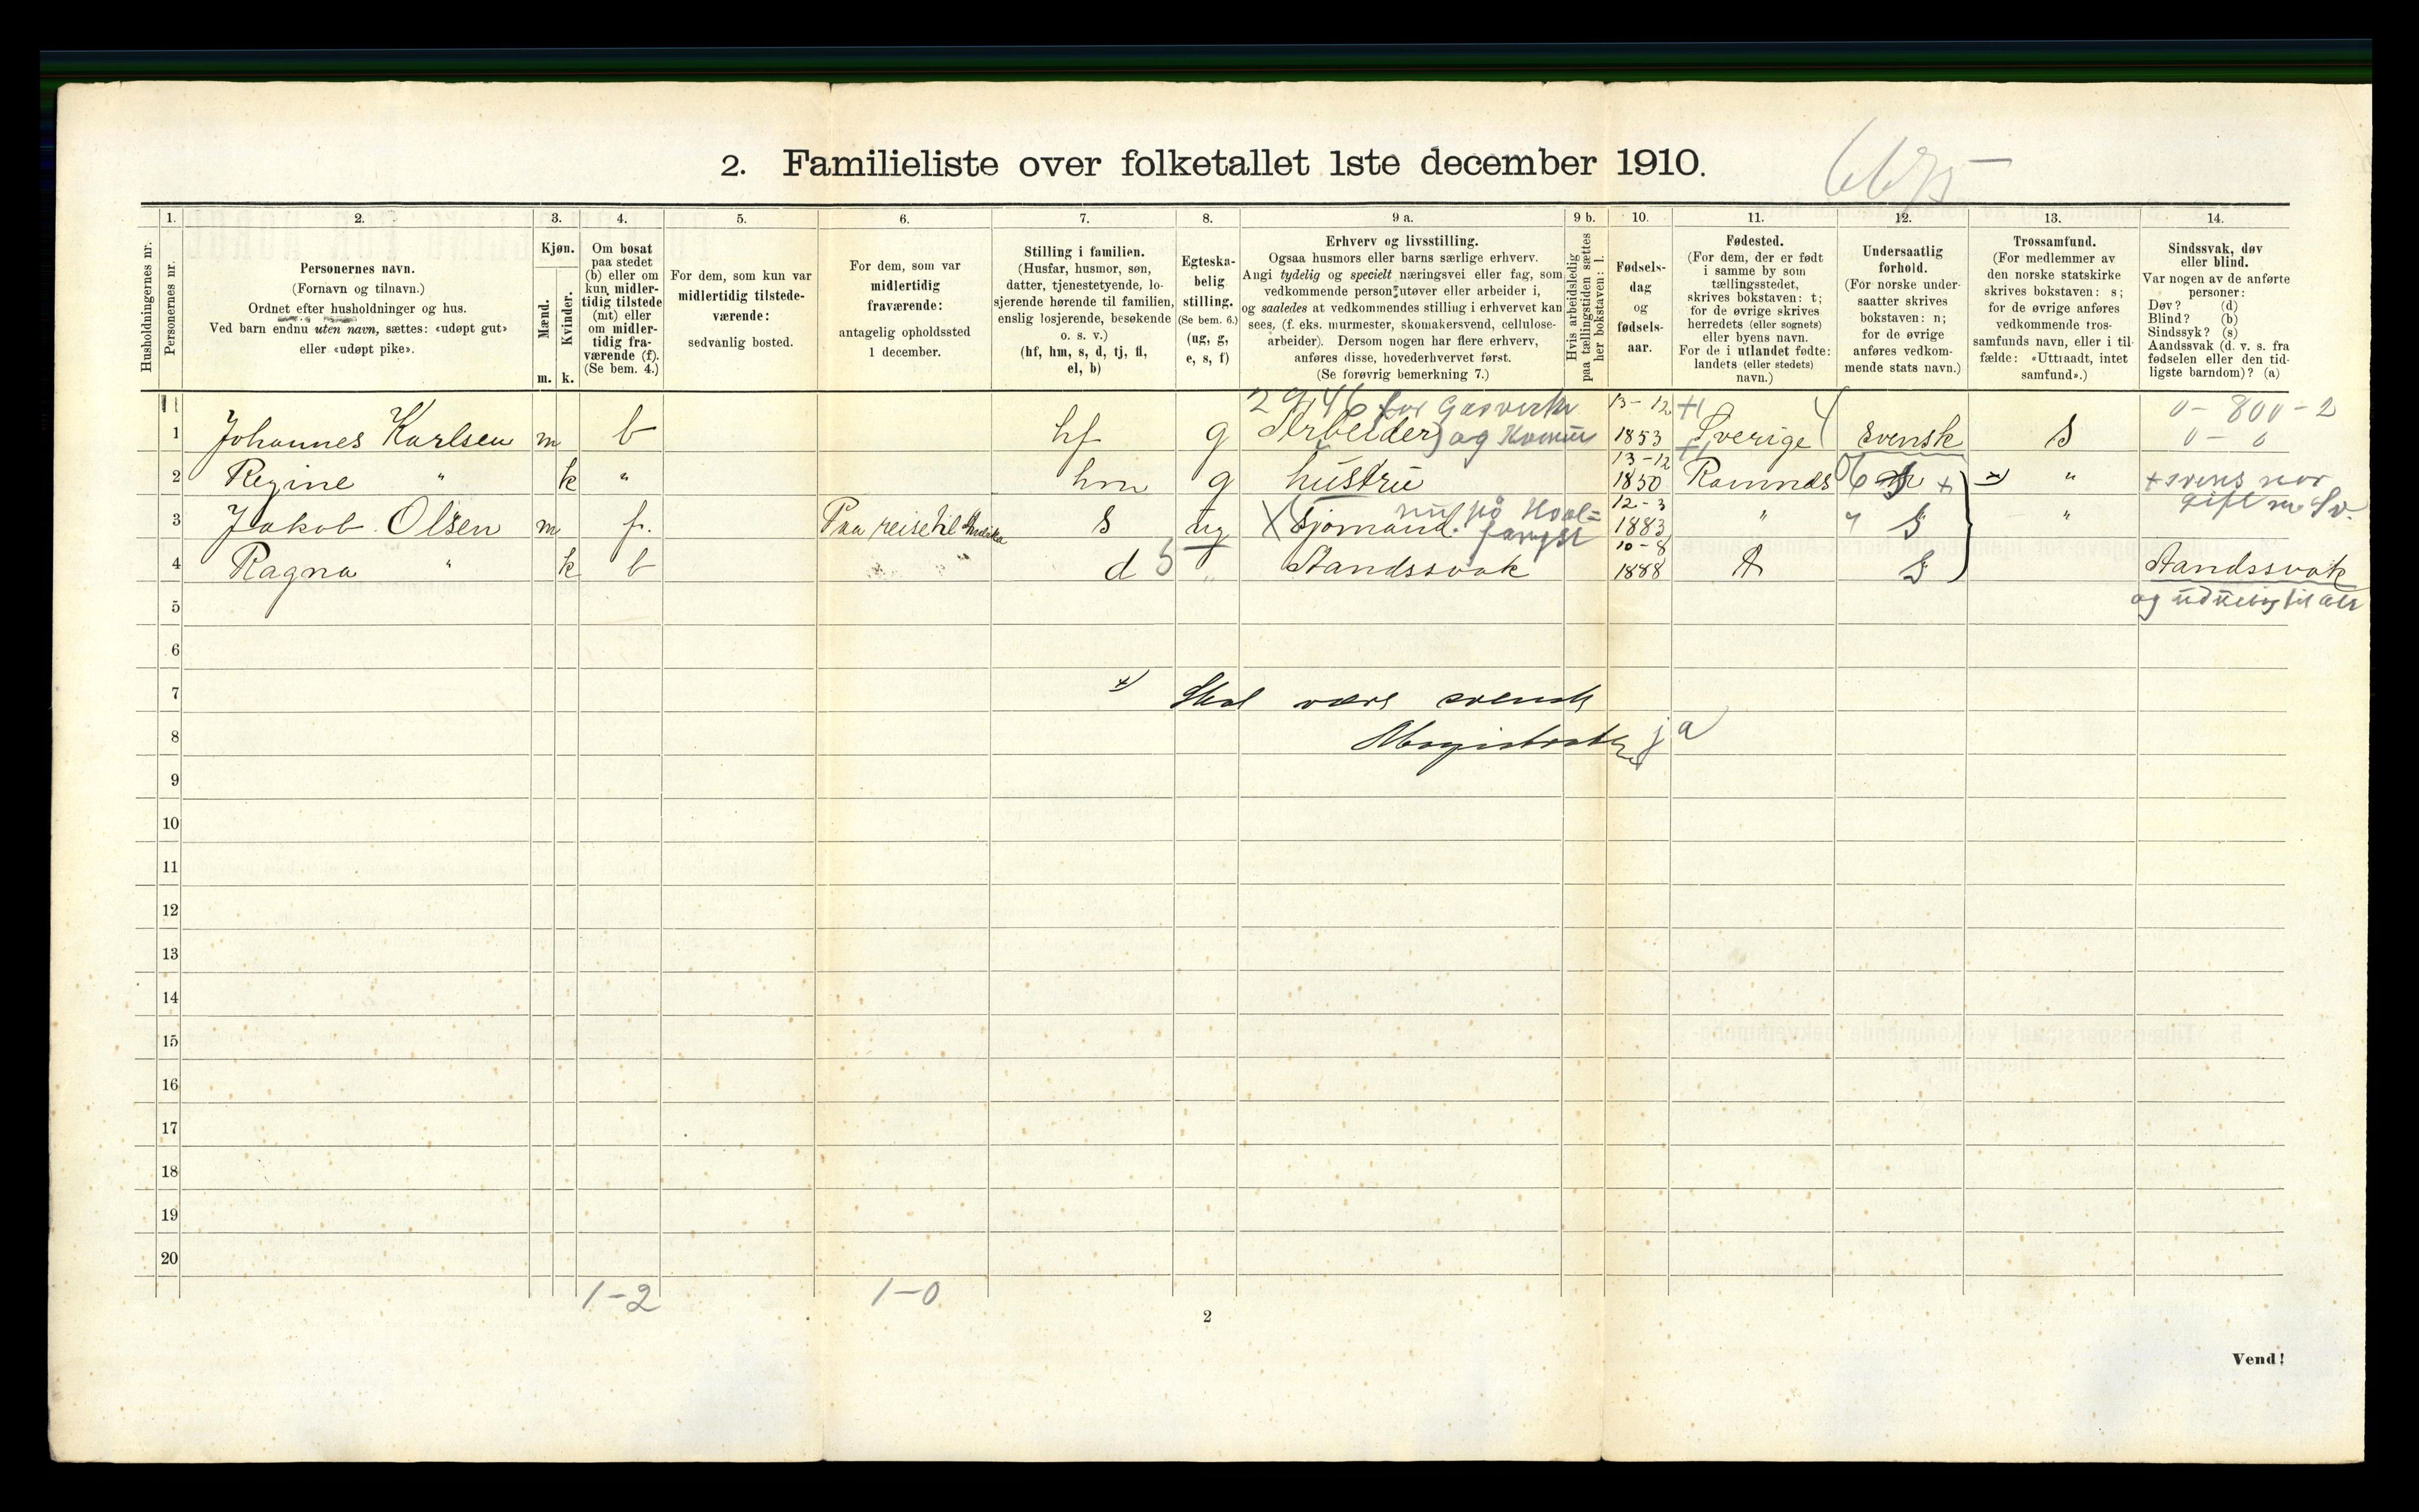 2. Familieliste over folketallet 1ste december 1910.
1. 2. 3. 4. 5. 6. 7. 8. 9 a. 9 b. 10. 11. 12. 13. 14.
Husholdningernes nr.
Personernes nr.
Personernes navn.
(Fornavn og tilnavn.)
Ordnet efter husholdninger og hus.
Ved barn endnu uten navn, sættes: «udøpt gut»
eller «udøpt pike».
Kjøn.
Mænd.
Kvinder.
m. k.
Om bosat
paa stedet
(b) eller om
kun midler-
tidig tilstede
(mt) eller
om midler-
tidig fra-
værende (f).
(Se bem. 4.)
For dem, som kun var
midlertidig tilstede-
værende:
sedvanlig bosted.
For dem, som var
midlertidig
fraværende:
antagelig opholdssted
1 december.
Stilling i familien.
(Husfar, husmor, søn,
datter, tjenestetyende, lo-
sjerende hørende til familien,
enslig losjerende, besøkende
o. s. v.)
(hf, hm, s, d, tj, fl,
el, b)
Egteska-
belig
stilling.
(Se bem. 6.)
(ug, g,
e, s, f)
Erhverv og livsstilling.
Ogsaa husmors eller barns særlige erhverv.
Angi tydelig og specielt næringsvei eller fag, som
vedkommende person utøver eller arbeider i,
og saaledes at vedkommendes stilling i erhvervet kan
sees, (f. eks. murmester, skomakersvend, cellulose-
arbeider). Dersom nogen har flere erhverv,
anføres disse, hovederhvervet først.
(Se forøvrig bemerkning 7.)
Hvis arbeidsledig
paa tællingstiden sættes
her bokstaven: l.
Fødsels-
dag
og
fødsels-
aar.
Fødested.
(For dem, der er født
i samme by som
tællingsstedet,
skrives bokstaven: t;
for de øvrige skrives
herredets (eller sognets)
eller byens navn.
For de i utlandet fødte:
landets (eller stedets)
navn.)
Undersaatlig
forhold.
(For norske under-
saatter skrives
bokstaven: n;
for de øvrige
anføres vedkom-
mende stats navn.)
Trossamfund.
(For medlemmer av
den norske statskirke
skrives bokstaven: s;
for de øvrige anføres
vedkommende tros-
samfunds navn, eller i til-
fælde: «Uttraadt, intet
samfund».)
Sindssvak, døv
eller blind.
Var nogen av de anførte
personer:
Døv? (d)
Blind? (b)
Sindssyk? (s)
Aandssvak (d. v. s. fra
fødselen eller den tid-
ligste barndom)? (a)
2946 for Gasverk 13-12 0-800-2
1 Johannes Karlsen m b hf g Arbeider og Komm 1853 Sverige svensk S 0-0
13-12
2 Regine " k " hm g hustru 1850 Ramnes + "
nu på Hval= 12-3 gift m Sv.
3 Jakob Olsen m f. Paa reise til s ug Sjømand. fangst 1883 " "
10-8
4 Ragna " k b d " Aandssvak 1888 Aandssvak
5 og til
6
7 Skal være svensk
8 Magistraten ja
9
10
11
12
13
14
15
16
17
18
19
20
1-2 1-0
2
Vend!